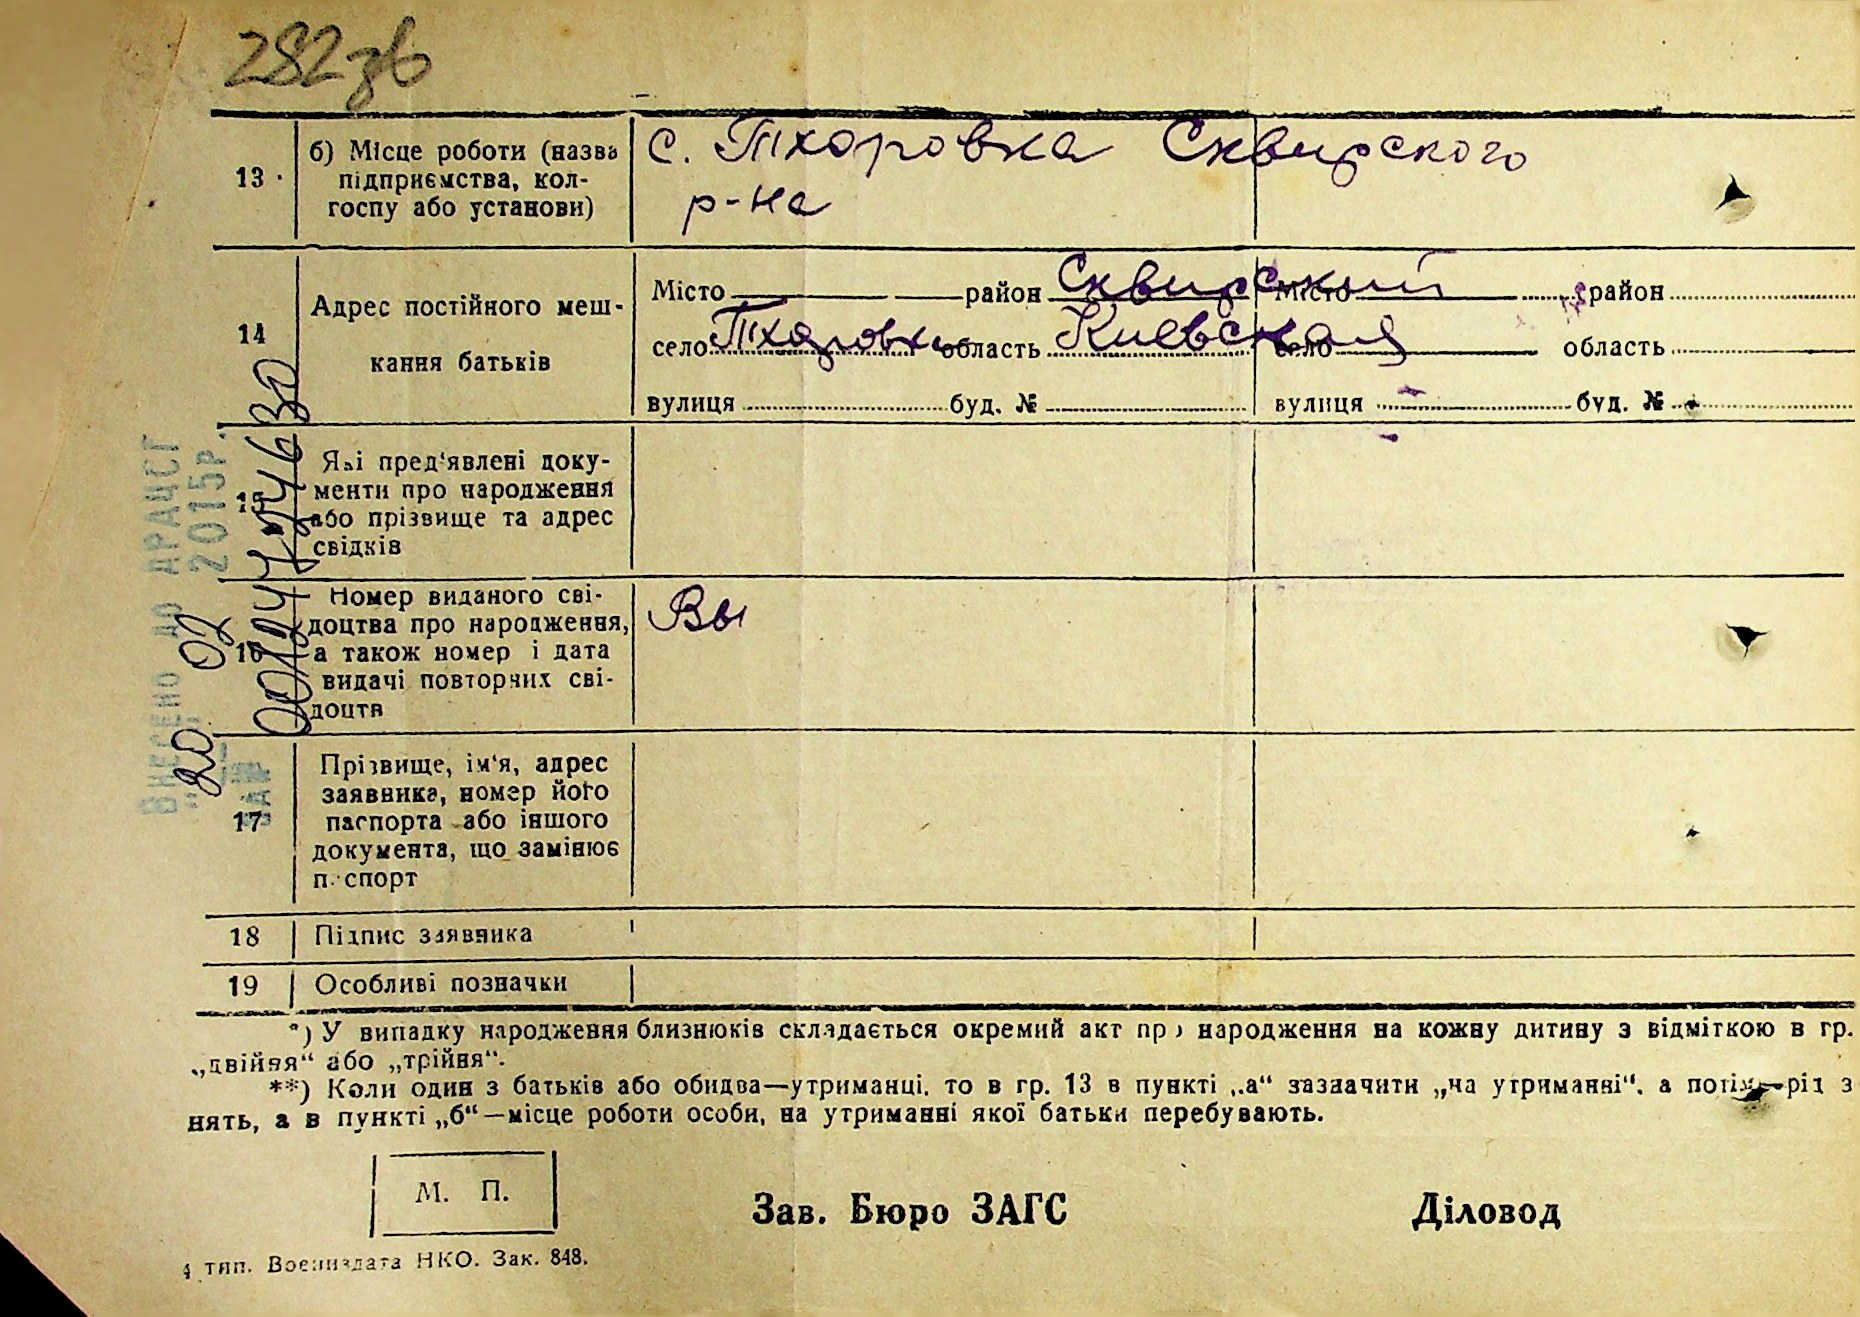 282зв
13 б) Місце роботи (назва
підприємства, кол-
госпу або установи)
с. Тхоровка Сквирского
р-на
14 Адрес постійного меш-
кання батьків
Місто район Сквирский Місто район
село Тхоровка область Киевская село область
вулиця буд. № вулиця буд. №
15 Які пред'явлені доку-
менти про народження
або прізвище та адрес
свідків
16 Номер виданого сві-
доцтва про народження,
а також номер і дата
видачі повторних сві-
доцтв
Вы
17 Прізвище, ім'я, адрес
заявника, номер його
паспорта або іншого
документа, що замінює
паспорт
18 Підпис заявника
19 Особливі позначки
Внесено до ДРАЦСГ
"20" 02 2015р.
*) У випадку народження близнюків складається окремий акт про народження на кожну дитину з відміткою в гр.
„двійня“ або „трійня“.
**) Коли один з батьків або обидва—утриманці, то в гр. 13 в пункті „а“ зазначити „на утриманні“, а потім—рід з
нять, а в пункті „б“—місце роботи особи, на утриманні якої батьки перебувають.
М. П.
Зав. Бюро ЗАГС Діловод
4 тип. Воениздата НКО. Зак. 848.